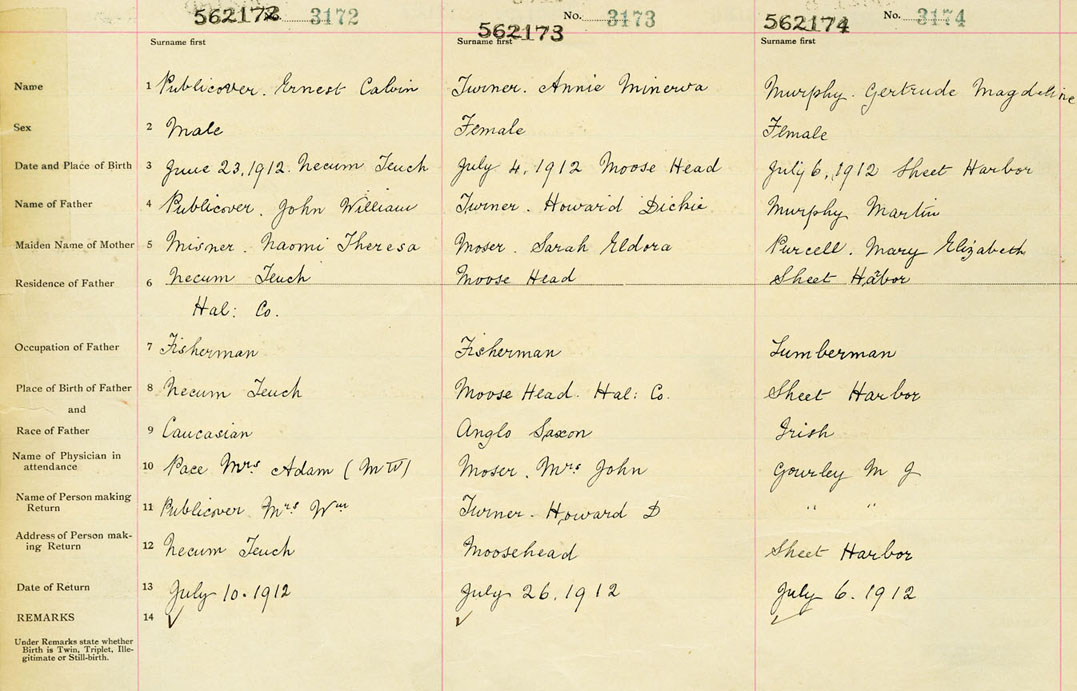 562172 3172 No. 3173 No. 3174
562173 562174
Surname first Surname first Surname first
Name 1 Publicover. Ernest Calvin Turner. Annie Minerva Murphy. Gertrude Magdeline
Sex 2 Male Female Female
Date and Place of Birth 3 June 23, 1912. Necum Teuch July 4, 1912 Moose Head July 6, 1912 Sheet Harbor
Name of Father 4 Publicover. John William Turner. Howard Dickie Murphy Martin
Maiden Name of Mother 5 Misner. Naomi Theresa Moser. Sarah Eldora Purcell. Mary Elizabeth
Residence of Father 6 Necum Teuch Moose Head Sheet Habor
Hal: Co.
Occupation of Father 7 Fisherman Fisherman Lumberman
Place of Birth of Father 8 Necum Teuch Moose Head Hal: Co. Sheet Harbor
and
Race of Father 9 Caucasian Anglo Saxon Irish
Name of Physician in
attendance 10 Pace Mrs Adam (MW) Moser. Mrs John Gourley M J
Name of Person making
Return 11 Publicover Mrs Wm Turner. Howard D " "
Address of Person mak-
ing Return 12 Necum Teuch Moosehead Sheet Harbor
Date of Return 13 July 10. 1912 July 26. 1912 July 6. 1912
REMARKS 14
Under Remarks state whether
Birth is Twin, Triplet, Ille-
gitimate or Still-birth.